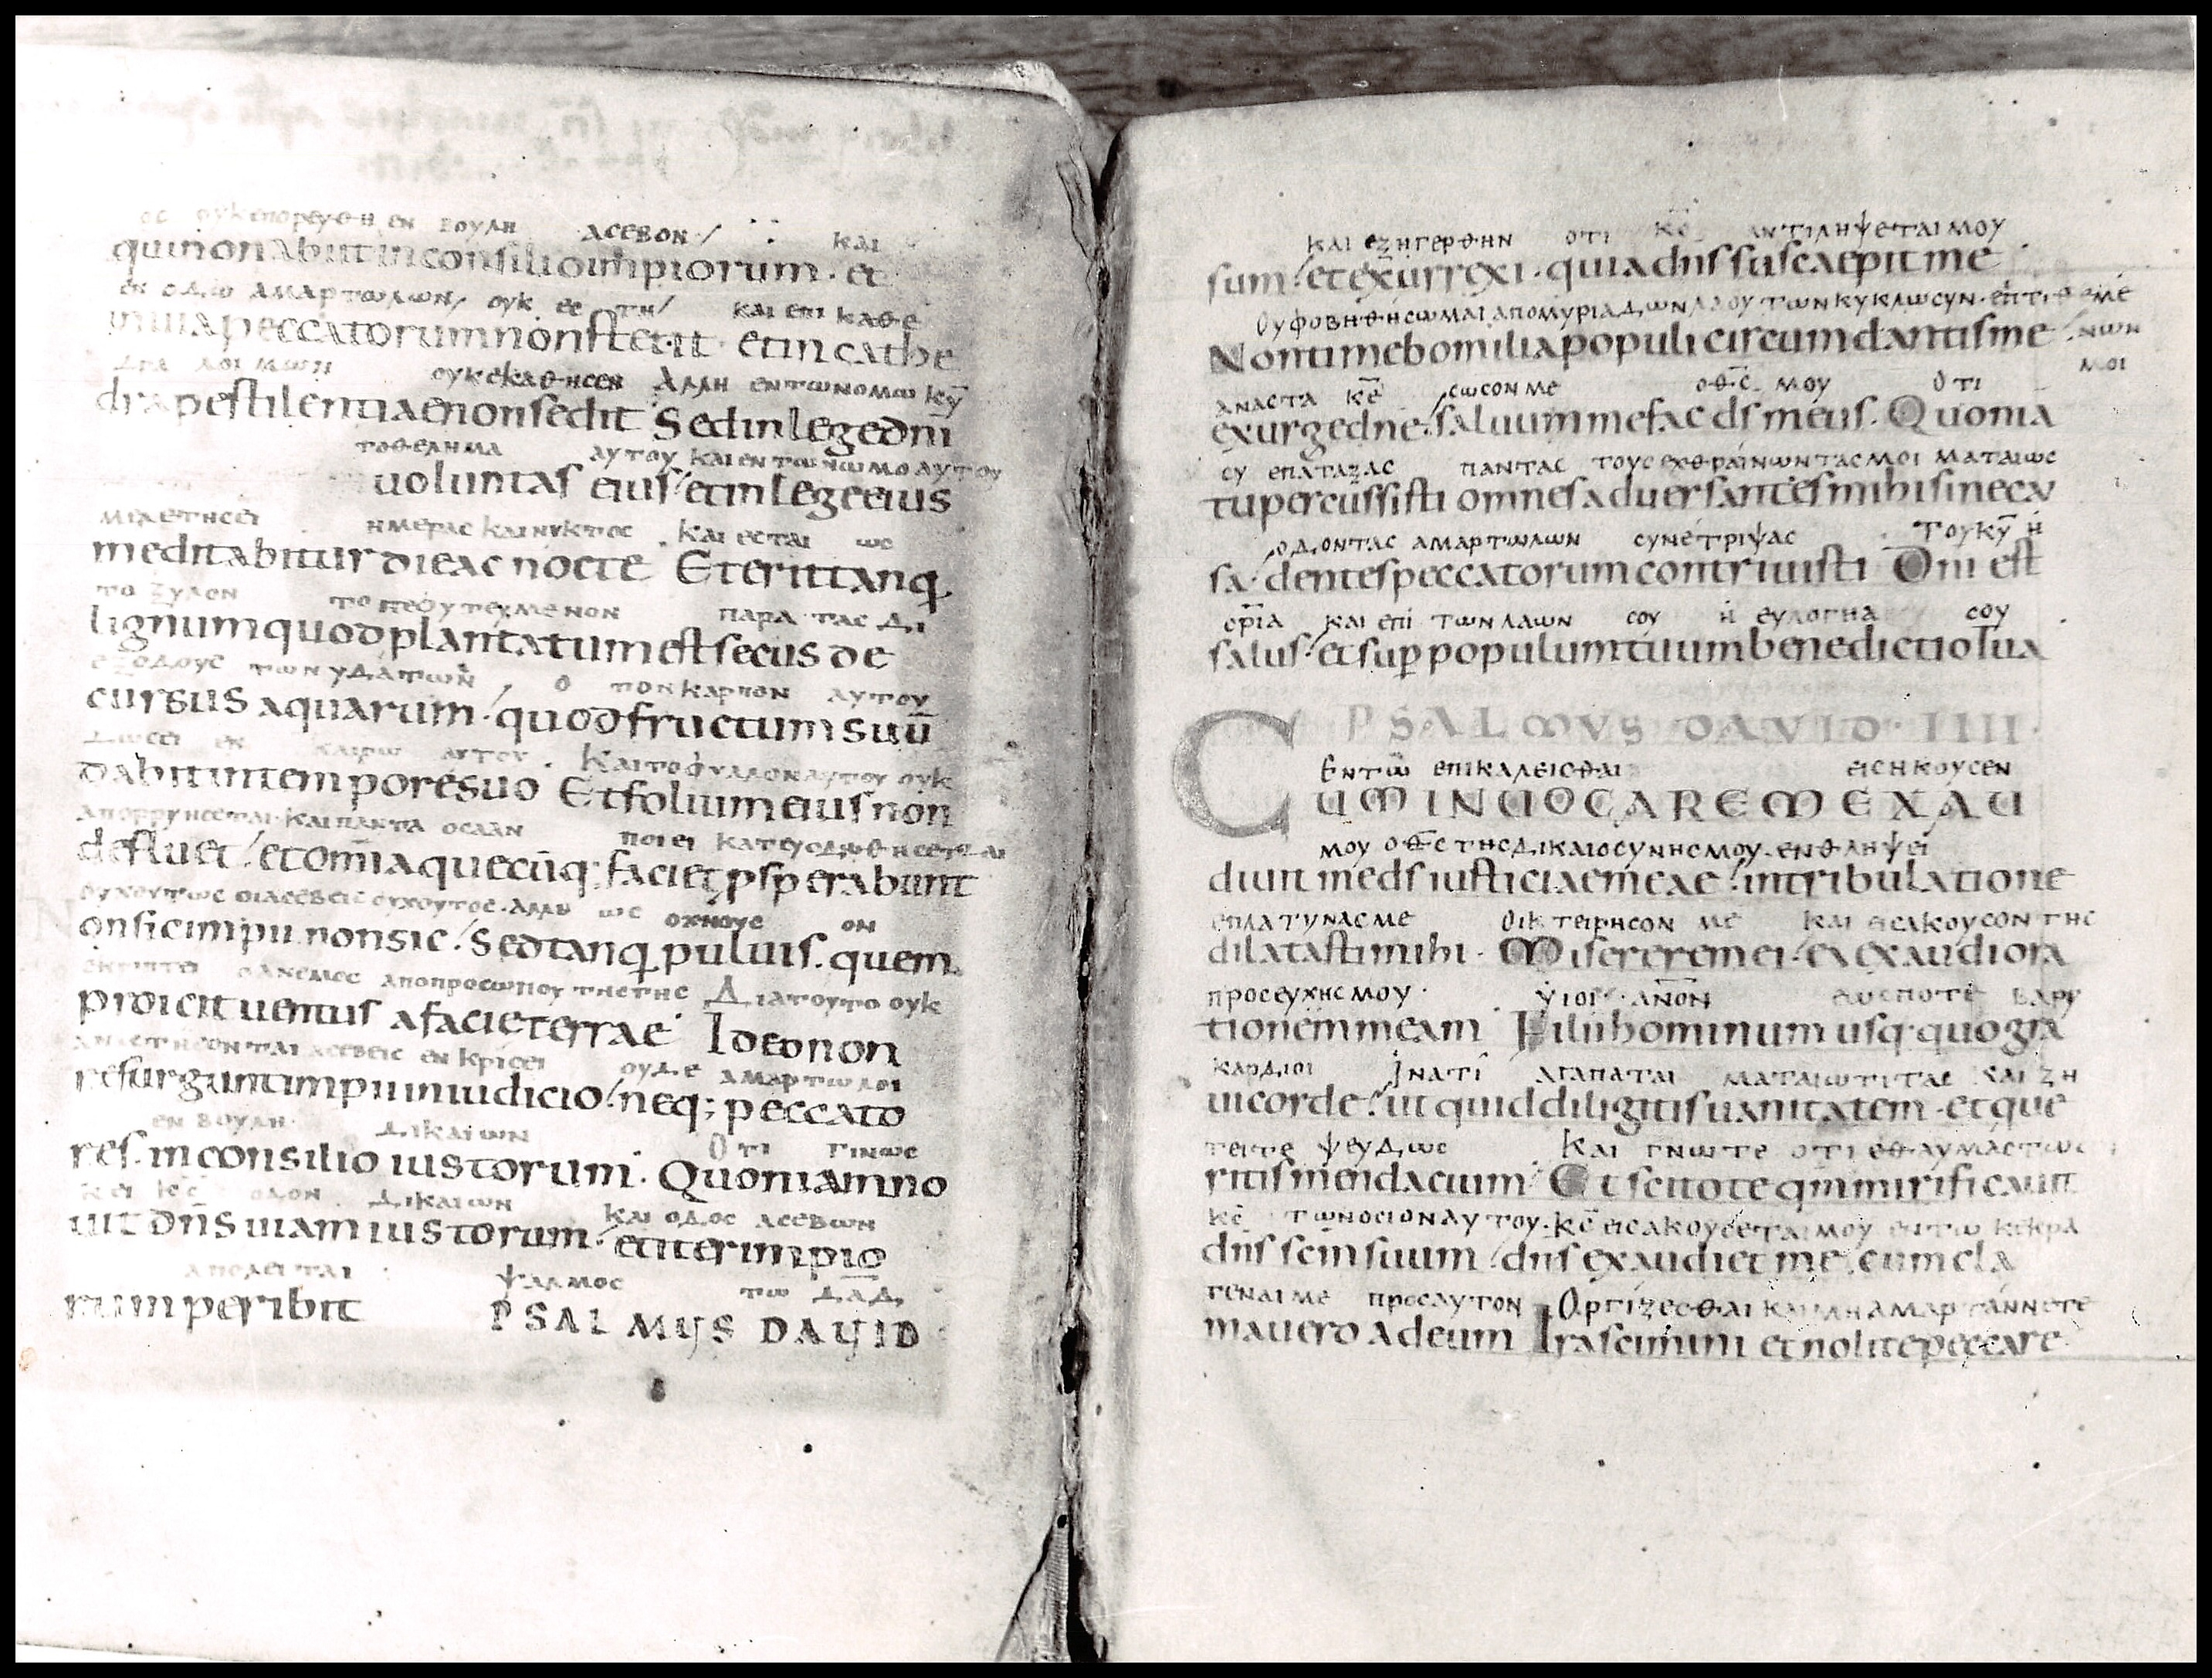 ΟC ΟΥΚ ΕΠΟΡΕΥΘΗ ΕΝ ΒΟΥΛΗ ΑCΕΒΟΝ ΚΑΙ
qui non abiit in consilio impiorum · et
ΕΝ ΟΔΩ ΑΜΑΡΤΩΛΩΝ ΟΥΚ ΕC ΤΗ ΚΑΙ ΕΠΙ ΚΑΘΕ
in uia peccatorum non stetit · et in cathe
ΔΡΑ ΛΟΙΜΩΝ ΟΥΚ ΕΚΑΘΗCΕΝ ΑΛΛΗ ΕΝ ΤΩ ΝΟΜΩ ΚῩ
dra pestilentiae non sedit Sed in lege dn̄i
ΤΟ ΘΕΛΗΜΑ ΑΥΤΟΥ ΚΑΙ ΕΝ ΤΩ ΝΩΜΟ ΑΥΤΟΥ
uoluntas eius et in lege eius
ΜΙΛΕΤΗCΕΙ ΗΜΕΡΑC ΚΑΙ ΝΥΚΤΟC ΚΑΙ ΕCΤΑΙ ΩC
meditabitur die ac nocte Et erit tanq
ΤΟ ΞΥΛΟΝ ΤΟ ΠΕΦΥΤΕΥΜΕΝΟΝ ΠΑΡΑ ΤΑC ΔΙ
lignum quod plantatum est secus de
ΕΞΟΔΟΥC ΤΩΝ ΥΔΑΤΩΝ Ο ΤΟΝ ΚΑΡΠΟΝ ΑΥΤΟΥ
cursus aquarum · quod fructum suū
ΔΩCΕΙ ΕΝ ΚΑΙΡΩ ΑΥΤΟΥ · ΚΑΙ ΤΟ ΦΥΛΛΟΝ ΑΥΤΟΥ ΟΥΚ
dabit in tempore suo Et folium eius non
ΑΠΟΡΡΥΗCΕΤΑΙ ΚΑΙ ΠΑΝΤΑ ΟCΑ ΑΝ ΠΟΙΕΙ ΚΑΤΕΥΟΔΩΘΗCΕΤΑΙ
defluet et om̄ia quecūq; faciet p̄sperabunt
ΟΥΧ ΟΥΤΩC ΟΙ ΑCΕΒΕΙC ΟΥΧ ΟΥΤΟC · ΑΛΛΗ ΩC ΟΧΝΟΥC ΟΝ
on sic impii non sic · Sed tanq puluis · quem
ΕΚΡΙΠΤΕΙ Ο ΑΝΕΜΟC ΑΠΟ ΠΡΟCΩΠΟΥ ΤΗC ΓΗC ΔΙΑ ΤΟΥΤΟ ΟΥΚ
proicit uentus a facie terrae Ideo non
ΑΝΑCΤΗCΟΝΤΑΙ ΑCΕΒΕΙC ΕΝ ΚΡΙCΕΙ ΟΥΔΕ ΑΜΑΡΤΩΛΟΙ
resurgunt impii in iudicio · neq; peccato
ΕΝ ΒΟΥΛΗ ΔΙΚΑΙΩΝ ΟΤΙ ΓΙΝΩC
res · in consilio iustorum · Quoniam no
ΚΕΙ ΚC̄ ΟΔΟΝ ΔΙΚΑΙΩΝ ΚΑΙ ΟΔΟC ΑCΕΒΩΝ
uit dn̄s uiam iustorum · et iter impio
ΑΠΟΛΕΙΤΑΙ ΨΑΛΜΟC ΤΩ ΔΑΔ
rum peribit PSALMUS DAUID
ΚΑΙ ΕΞΗΓΕΡΘΗΝ ΟΤΙ ΚC̄ ΑΝΤΙΛΗΨΕΤΑΙ ΜΟΥ
sum · et exurrexi · quia dn̄s suscaepit me
ΟΥ ΦΟΒΗΘΗCΩΜΑΙ ΑΠΟ ΜΥΡΙΑΔΩΝ ΛΑΟΥ ΤΩΝ ΚΥΚΛΩ CΥΝ·ΕΠΙΤΙΘΕΜΕ
Non timebo milia populi circumdantis me ΝΩΝ
ΜΟΙ
ΑΝΑCΤΑ ΚΕ̄ CΩCΟΝ ΜΕ ΟΘC̄ ΜΟΥ ΟΤΙ
exurge dn̄e · saluum me fac ds̄ meus · Quonia
CΥ ΕΠΑΤΑΞΑC ΠΑΝΤΑC ΤΟΥC ΕΧΘΡΑΙΝΩΝΤΑC ΜΟΙ ΜΑΤΑΙΩC
tu percussisti omnes aduersantes mihi sine cau
ΟΔΟΝΤΑC ΑΜΑΡΤΩΛΩΝ CΥΝΕΤΡΙΨΑC ΤΟΥ ΚῩ Η
sa · dentes peccatorum contriuisti Dn̄i est
CΡ̄ΙΑ ΚΑΙ ΕΠΙ ΤΩΝ ΛΑΩΝ CΟΥ Η ΕΥΛΟΓΗΑ CΟΥ
salus · et sup populum tuum benedictio tua
PSALMUS DAUID · IIII ·
ΕΝ ΤΩ ΕΠΙΚΑΛΕΙCΘΑΙ ΕΙCΗΚΟΥCΕΝ
CUM INUOCAREM EXAU
ΜΟΥ ΟΘC̄ ΤΗC ΔΙΚΑΙΟCΥΝΗC ΜΟΥ · ΕΝ ΘΛΗΨΕΙ
diuit me ds̄ iusticiae meae · in tribulatione
ΕΠΛΑΤΥΝΑC ΜΕ ΟΙΚΤΕΙΡΗCΟΝ ΜΕ ΚΑΙ ΕΙCΑΚΟΥCΟΝ ΤΗC
dilatasti mihi · Miserere mei · ex exaudi ora
ΠΡΟCΕΥΧΗC ΜΟΥ · ΥΙΟΙ · ΑΝ̄ΟΝ ΕΩC ΠΟΤΕ ΒΑΡΥ
tionem meam Filii hominum usq quo gra
ΚΑΡΔΙΟΙ ΙΝΑΤΙ ΑΓΑΠΑΤΑΙ ΜΑΤΑΙΩΤΙΤΑC ΚΑΙ ΖΗ
ui corde · ut quid diligitis uanitatem · et que
ΤΕΙΤΕ ΨΕΥΔΩC ΚΑΙ ΓΝΩΤΕ ΟΤΙ ΕΘΑΥΜΑCΤΩC
ritis mendacium Et scitote qm̄ mirificauit
ΚC̄ ΤΩΝ ΟCΙΟΝ ΑΥΤΟΥ · ΚC̄ ΕΙCΑΚΟΥCΕΤΑΙ ΜΟΥ ΕΝ ΤΩ ΚΕΚΡΑ
dn̄s sc̄m suum · dn̄s exaudiet me · cum cla
ΓΕΝΑΙ ΜΕ ΠΡΟC ΑΥΤΟΝ ΟΡΓΙΖΕCΘΑΙ ΚΑΙ ΜΗ ΑΜΑΡΤΑΝΝΕΤΕ
mauero ad eum Irascimini et nolite peccare